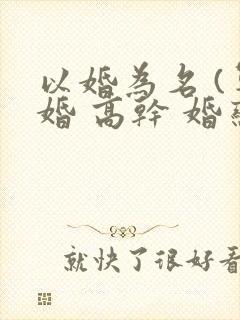 以婚為名(
婚 高幹 婚
就快了很好看